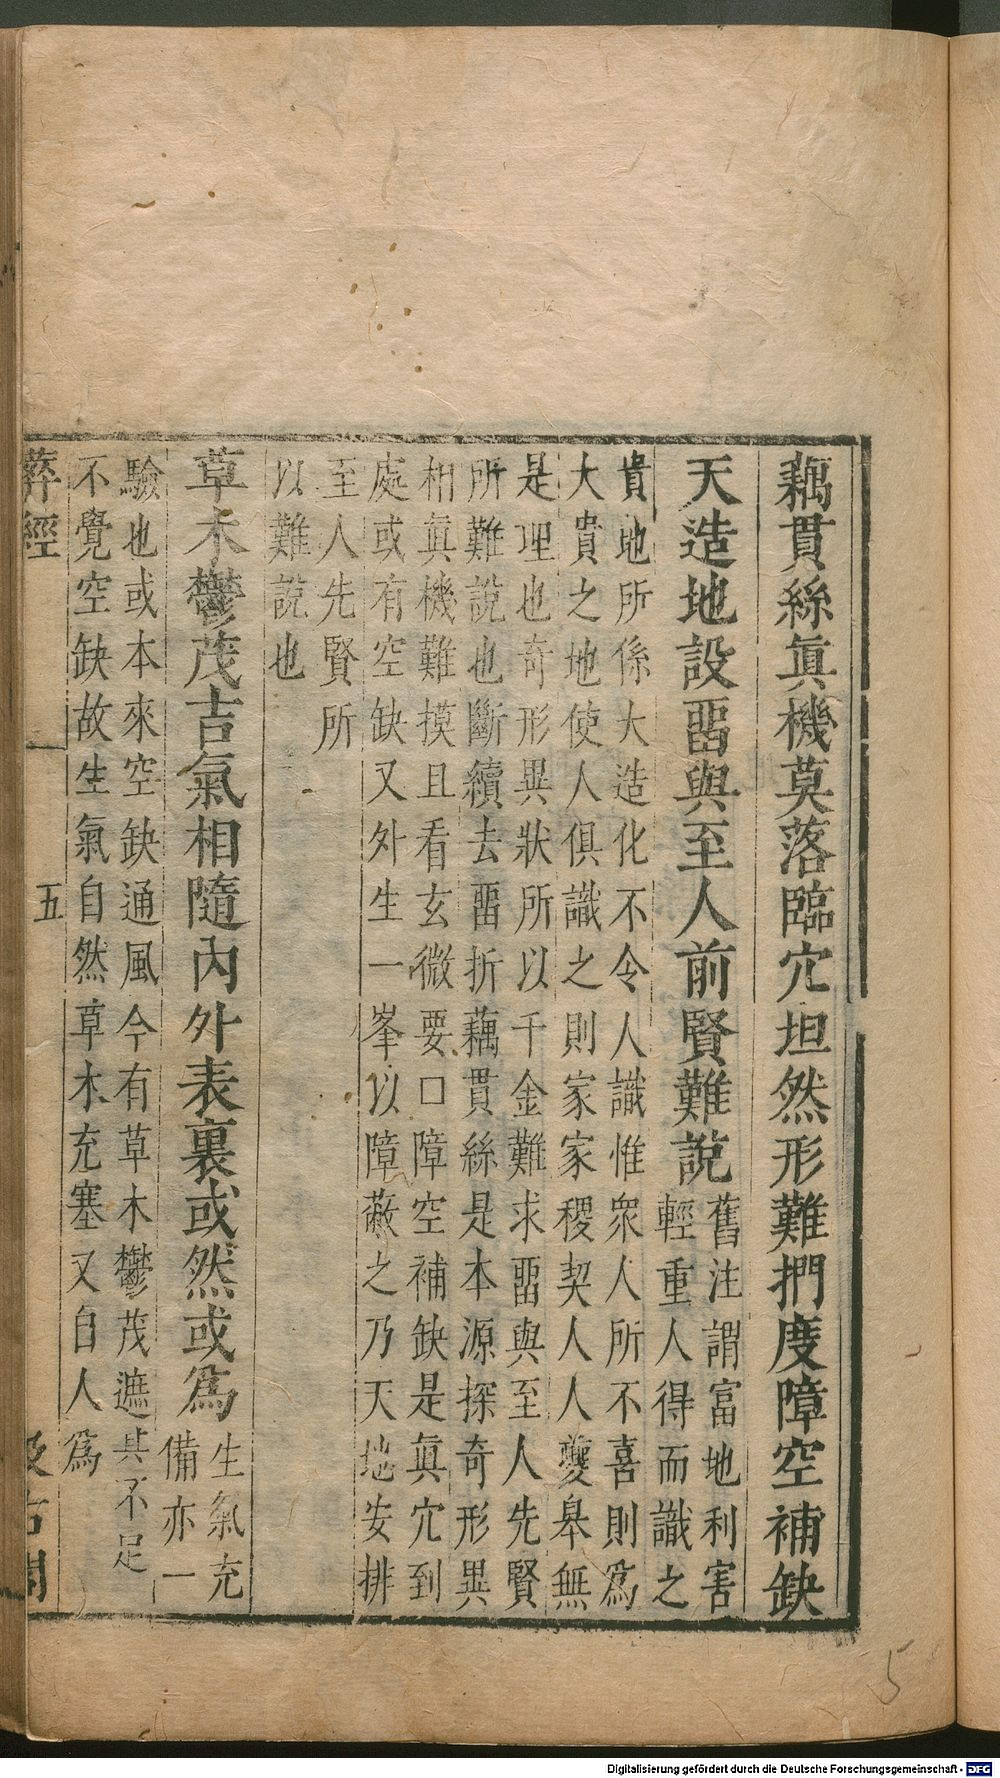 藕貫絲眞機莫落臨穴坦然形難捫度障空補缺
天造地設畱與至人前賢難說
舊注謂富地利害
輕重人得而識之
貴地所係大造化不令人識惟衆人所不喜則爲
大貴之地使人俱識之則家家稷契人人夔臯無
是理也奇形異狀所以千金難求畱與至人先賢
所難說也斷續去畱折藕貫絲是本源探奇形異
相眞機難摸且看玄微要口障空補缺是眞穴到
處或有空缺又外生一峯以障蔽之乃天地安排
至人先賢所
以難說也
草木鬱茂吉氣相隨內外表裏或然或爲
生氣充
備亦一
驗也或本來空缺通風今有草木鬱茂遮其不足
不覺空缺故生氣自然草木充塞又自人爲
葬經
五
汲古閣
5
Digitalisierung gefördert durch die Deutsche Forschungsgemeinschaft - DFG